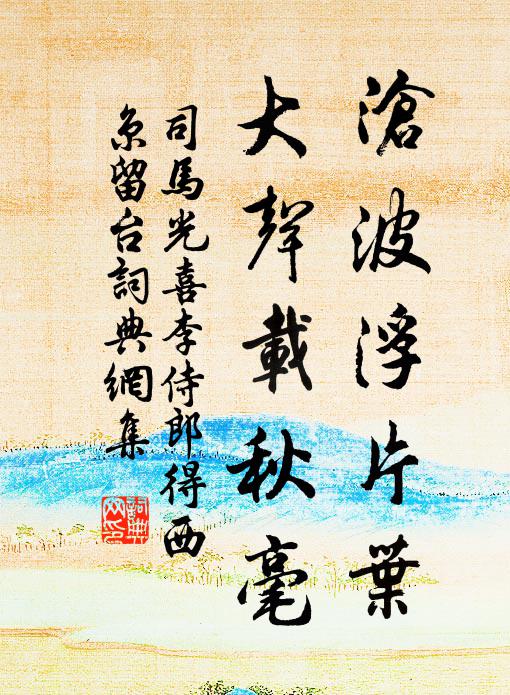 滄波浮片葉
大聲載秋毫
司馬光喜李侍郎得西
京留台詞典網集